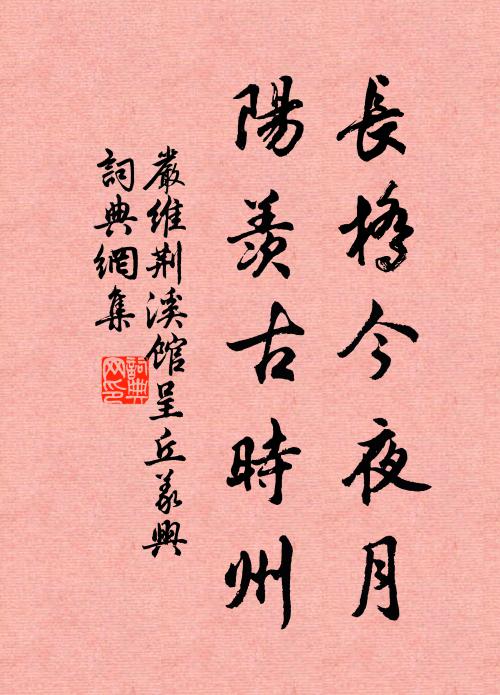 長橋今夜月
陽羨古時州
嚴維荆溪館呈丘義興
詞典網集
詞典网印